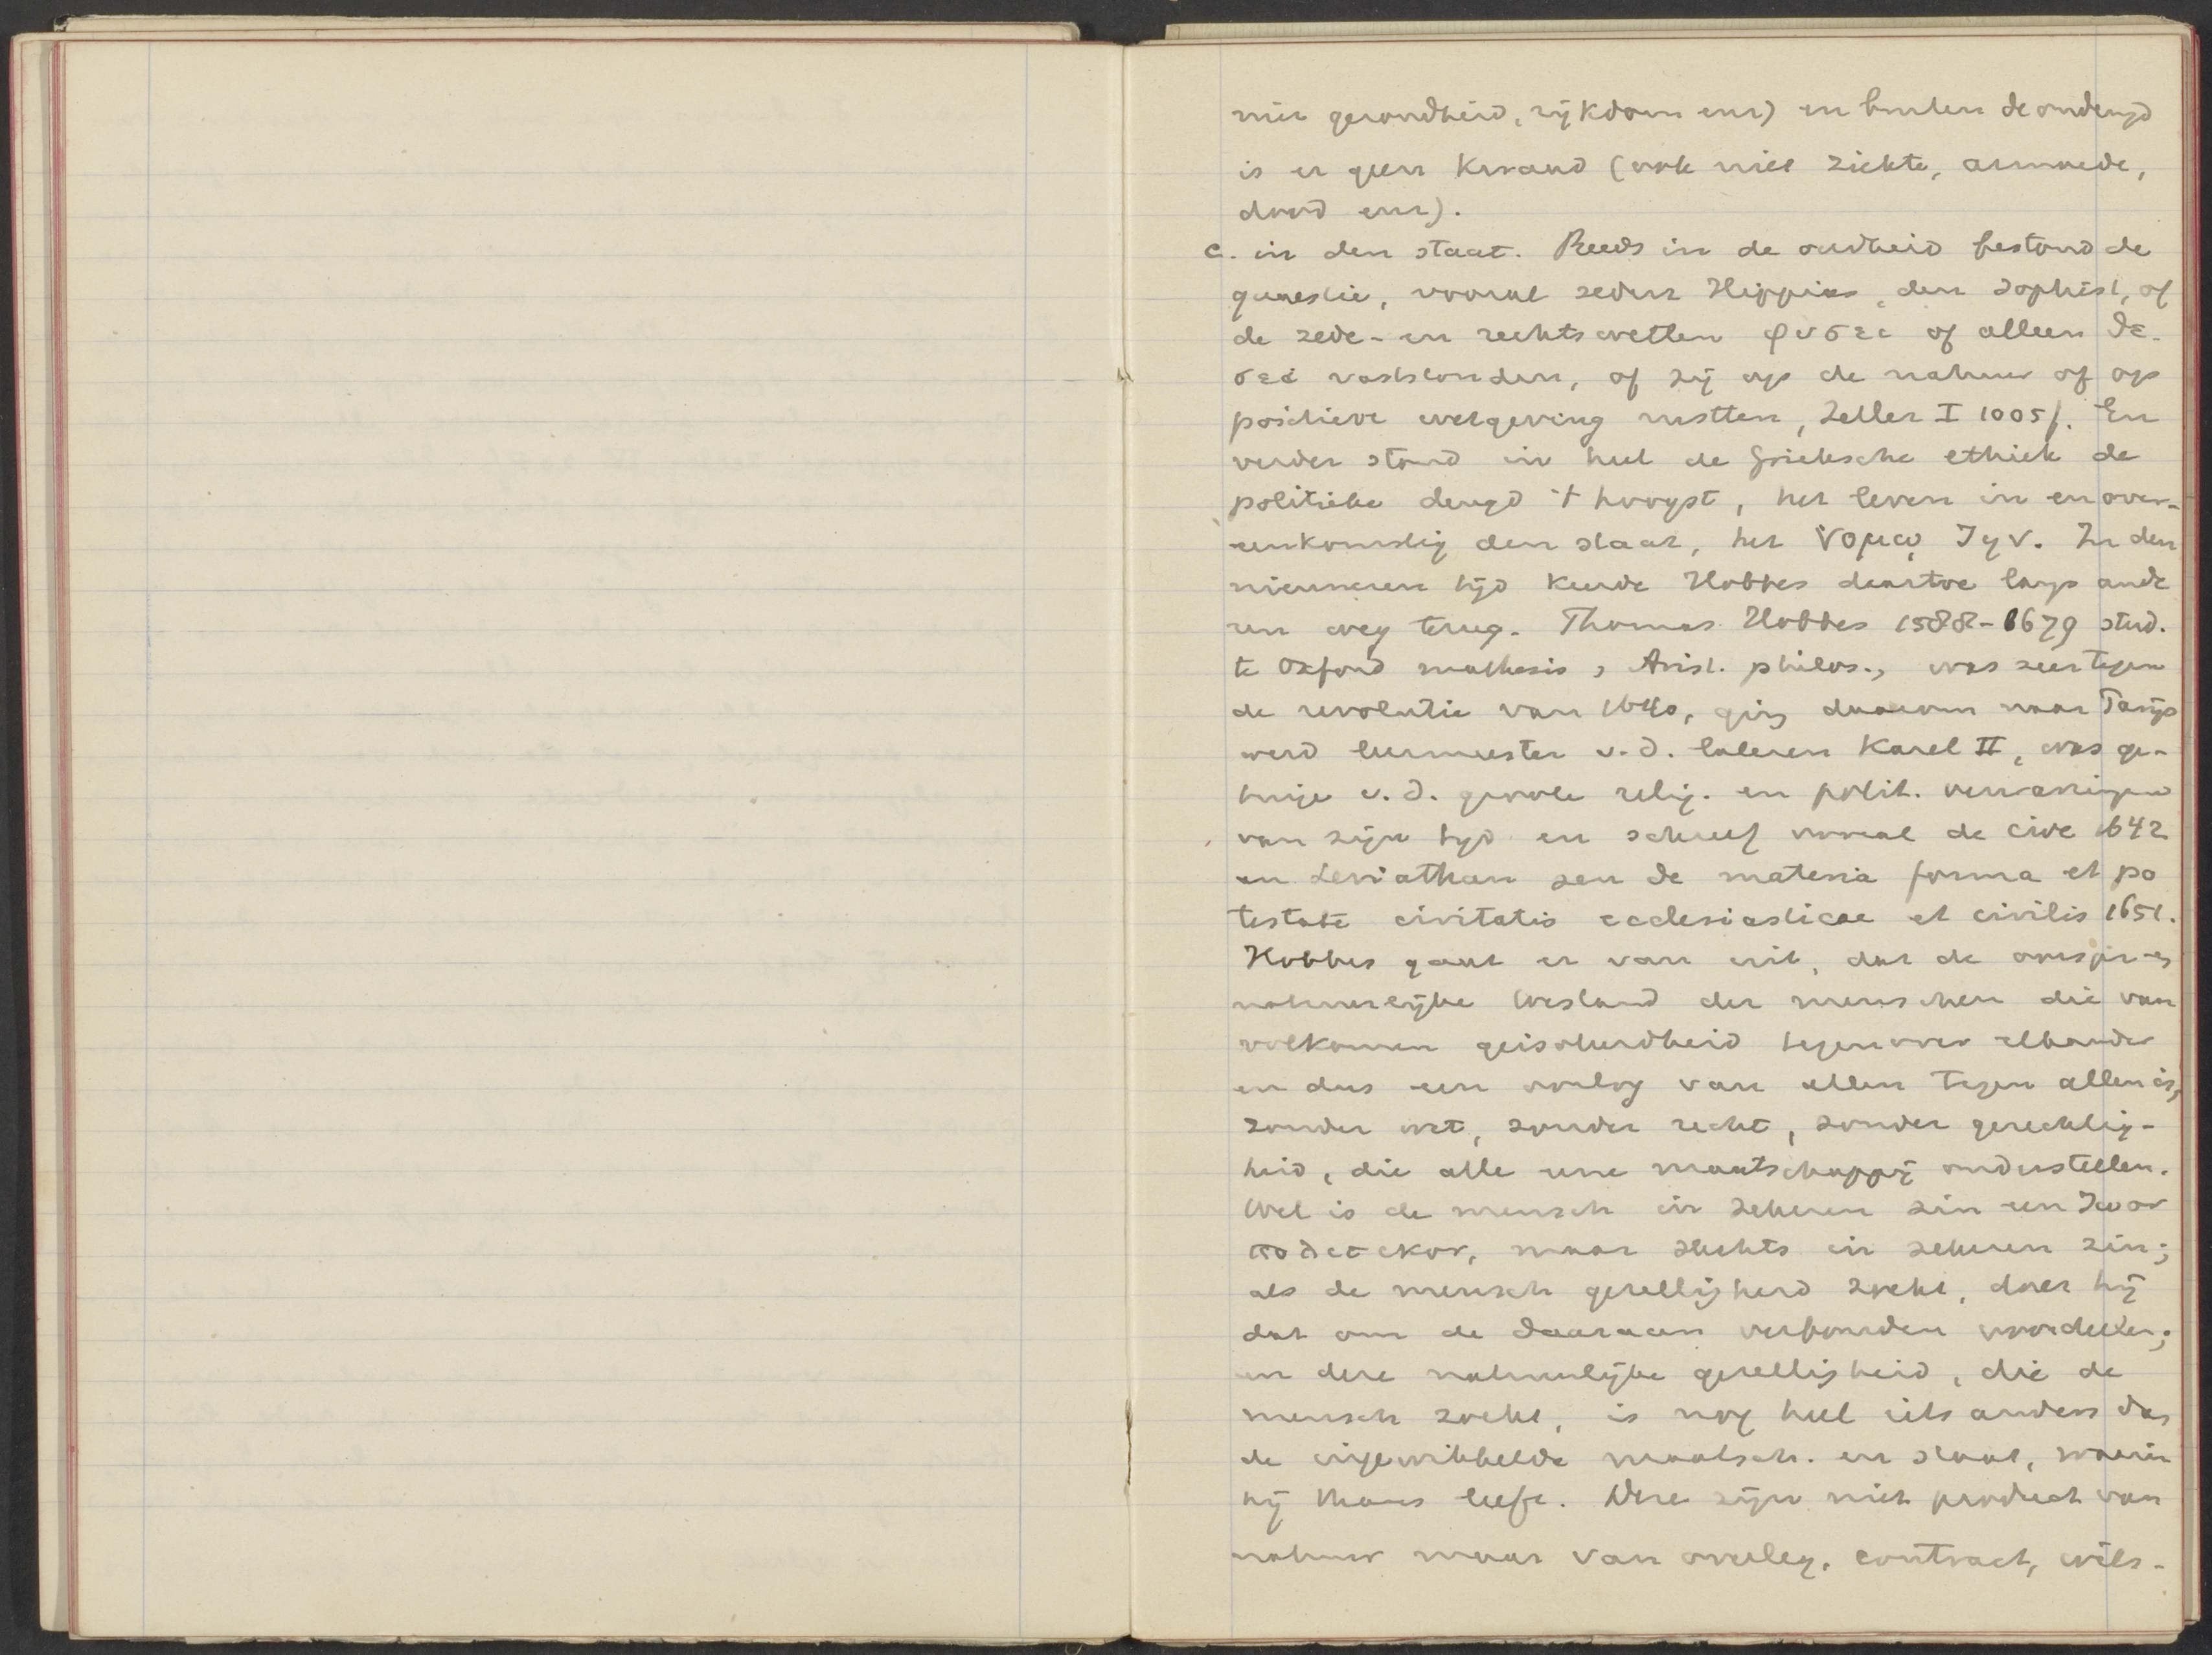 niet gezondheid, rijkdom enz) en buiten de ondeugd
is er geen kwaad (ook niet ziekte, armoede,
dood enz).
c. in den staat. Reeds in de oudheid bestond de
quaestie, vooral sedert Hippias, den Sophist, of
de zede- en rechtswetten φυσει of alleen θε-
σει vaststonden, of zij op de natuur of op
positieve wetgeving rustten, Zeller I 1005f. En
verder stond in heel de Grieksche ethiek de
politieke deugd 't hoogst, het leven in en over-
eenkomstig den staat, het νομῳ ζῃν. In den
nieuweren tijd keerde Hobbes daartoe langs ande
ren weg terug. Thomas Hobbes 1588-1679 stud.
te Oxford mathesis, Arist. philos., was zeer tegen
de revolutie van 1640, ging daarom naar Parijs
werd leermeester v.d. lateren Karel II, was ge-
tuige v.d. groote relig. en polit. verwarringen
van zijn tijd en schreef vooral de cive 1642
en Leviathan seu de materia forma et po
testate civitatis ecclesiasticae et civilis 1651.
Hobbes gaat er van uit, dat de
natuurlijke toestand der menschen die van
volkomen geisoleerdheid tegenover elkander
en dus een oorlog van allen tegen allen is,
zonder wet, zonder recht, zonder gerechtig-
heid, die alle eene maatschappij onderstellen.
Wel is de mensch in zekeren zin een ζωον
πολιτικον, maar slechts in zekeren zin;
als de mensch gezelligheid zoekt, doet hij
dat om de daaraan verbonden voordeelen;
en deze natuurlijke gezelligheid, die de
mensch zoekt, is nog heel iets anders dan
de ingewikkelde maatsch. en staat, waarin
hij thans leeft. Deze zijn niet product van
natuur maar van overleg, contract, wils-